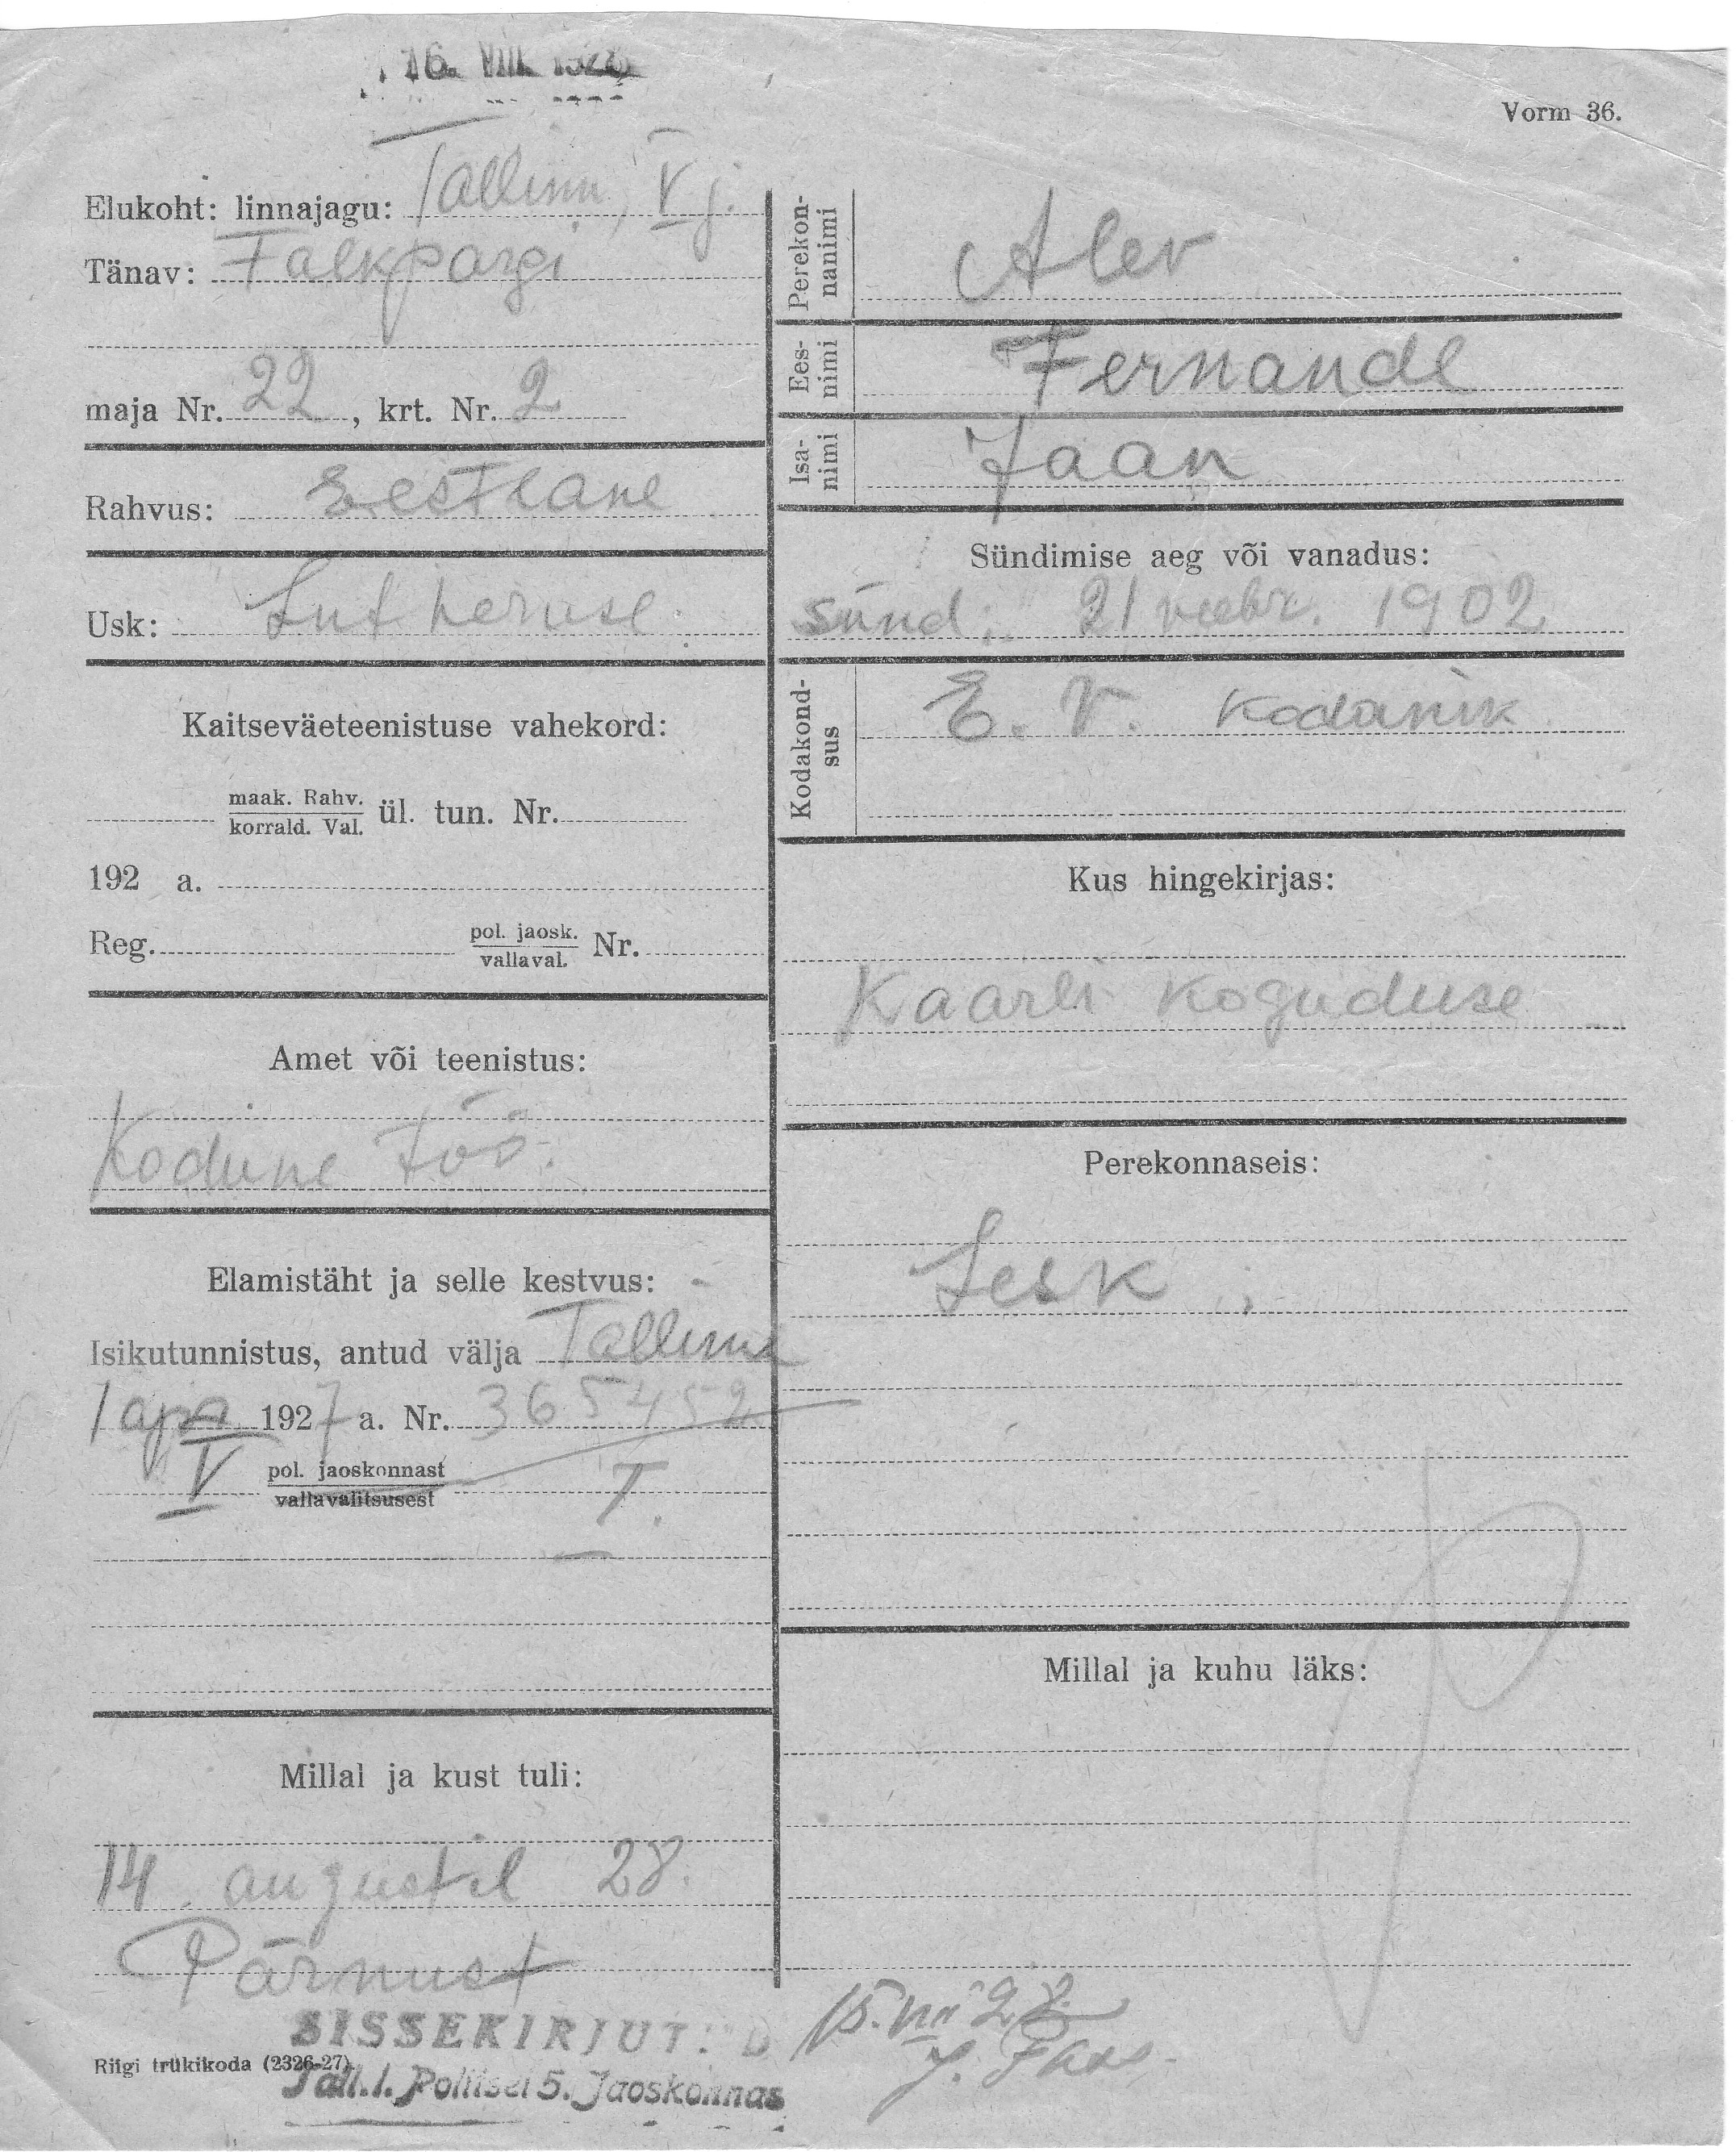 16. VIII. 1928
Vorm 36.
Elukoht: linnajagu: Tallinn, V j.
Tänav: Falkpargi
maja Nr. 22, krt. Nr. 2
Rahvus: Eestlane
Usk: Lutheruse
Kaitseväeteenistuse vahekord:
maak. Rahv.
korrald. Val. ül. tun. Nr.
192 a.
Reg. pol. jaosk.
vallaval. Nr.
Amet või teenistus:
Kodune töö.
Elamistäht ja selle kestvus:
Isikutunnistus, antud välja Tallinna
1 apr 1927 a. Nr. 365452
V pol. jaoskonnast T.
vallavalitsusest
Millal ja kust tuli:
14. augustil 28.
Pärnust
Perekonnanimi Alev
Eesnimi Fernande
Isanimi Jaan
Sündimise aeg või vanadus:
Sünd: 21 veebr. 1902
Kodakondsus E. V. Kodanik
Kus hingekirjas:
Kaarli Koguduse
Perekonnaseis:
Lesk;
Millal ja kuhu läks:
SISSEKIRJUT
Riigi trükikoda (2326-27)
Tall. l. Politsei 5. Jaoskonnas
15. VIII 28